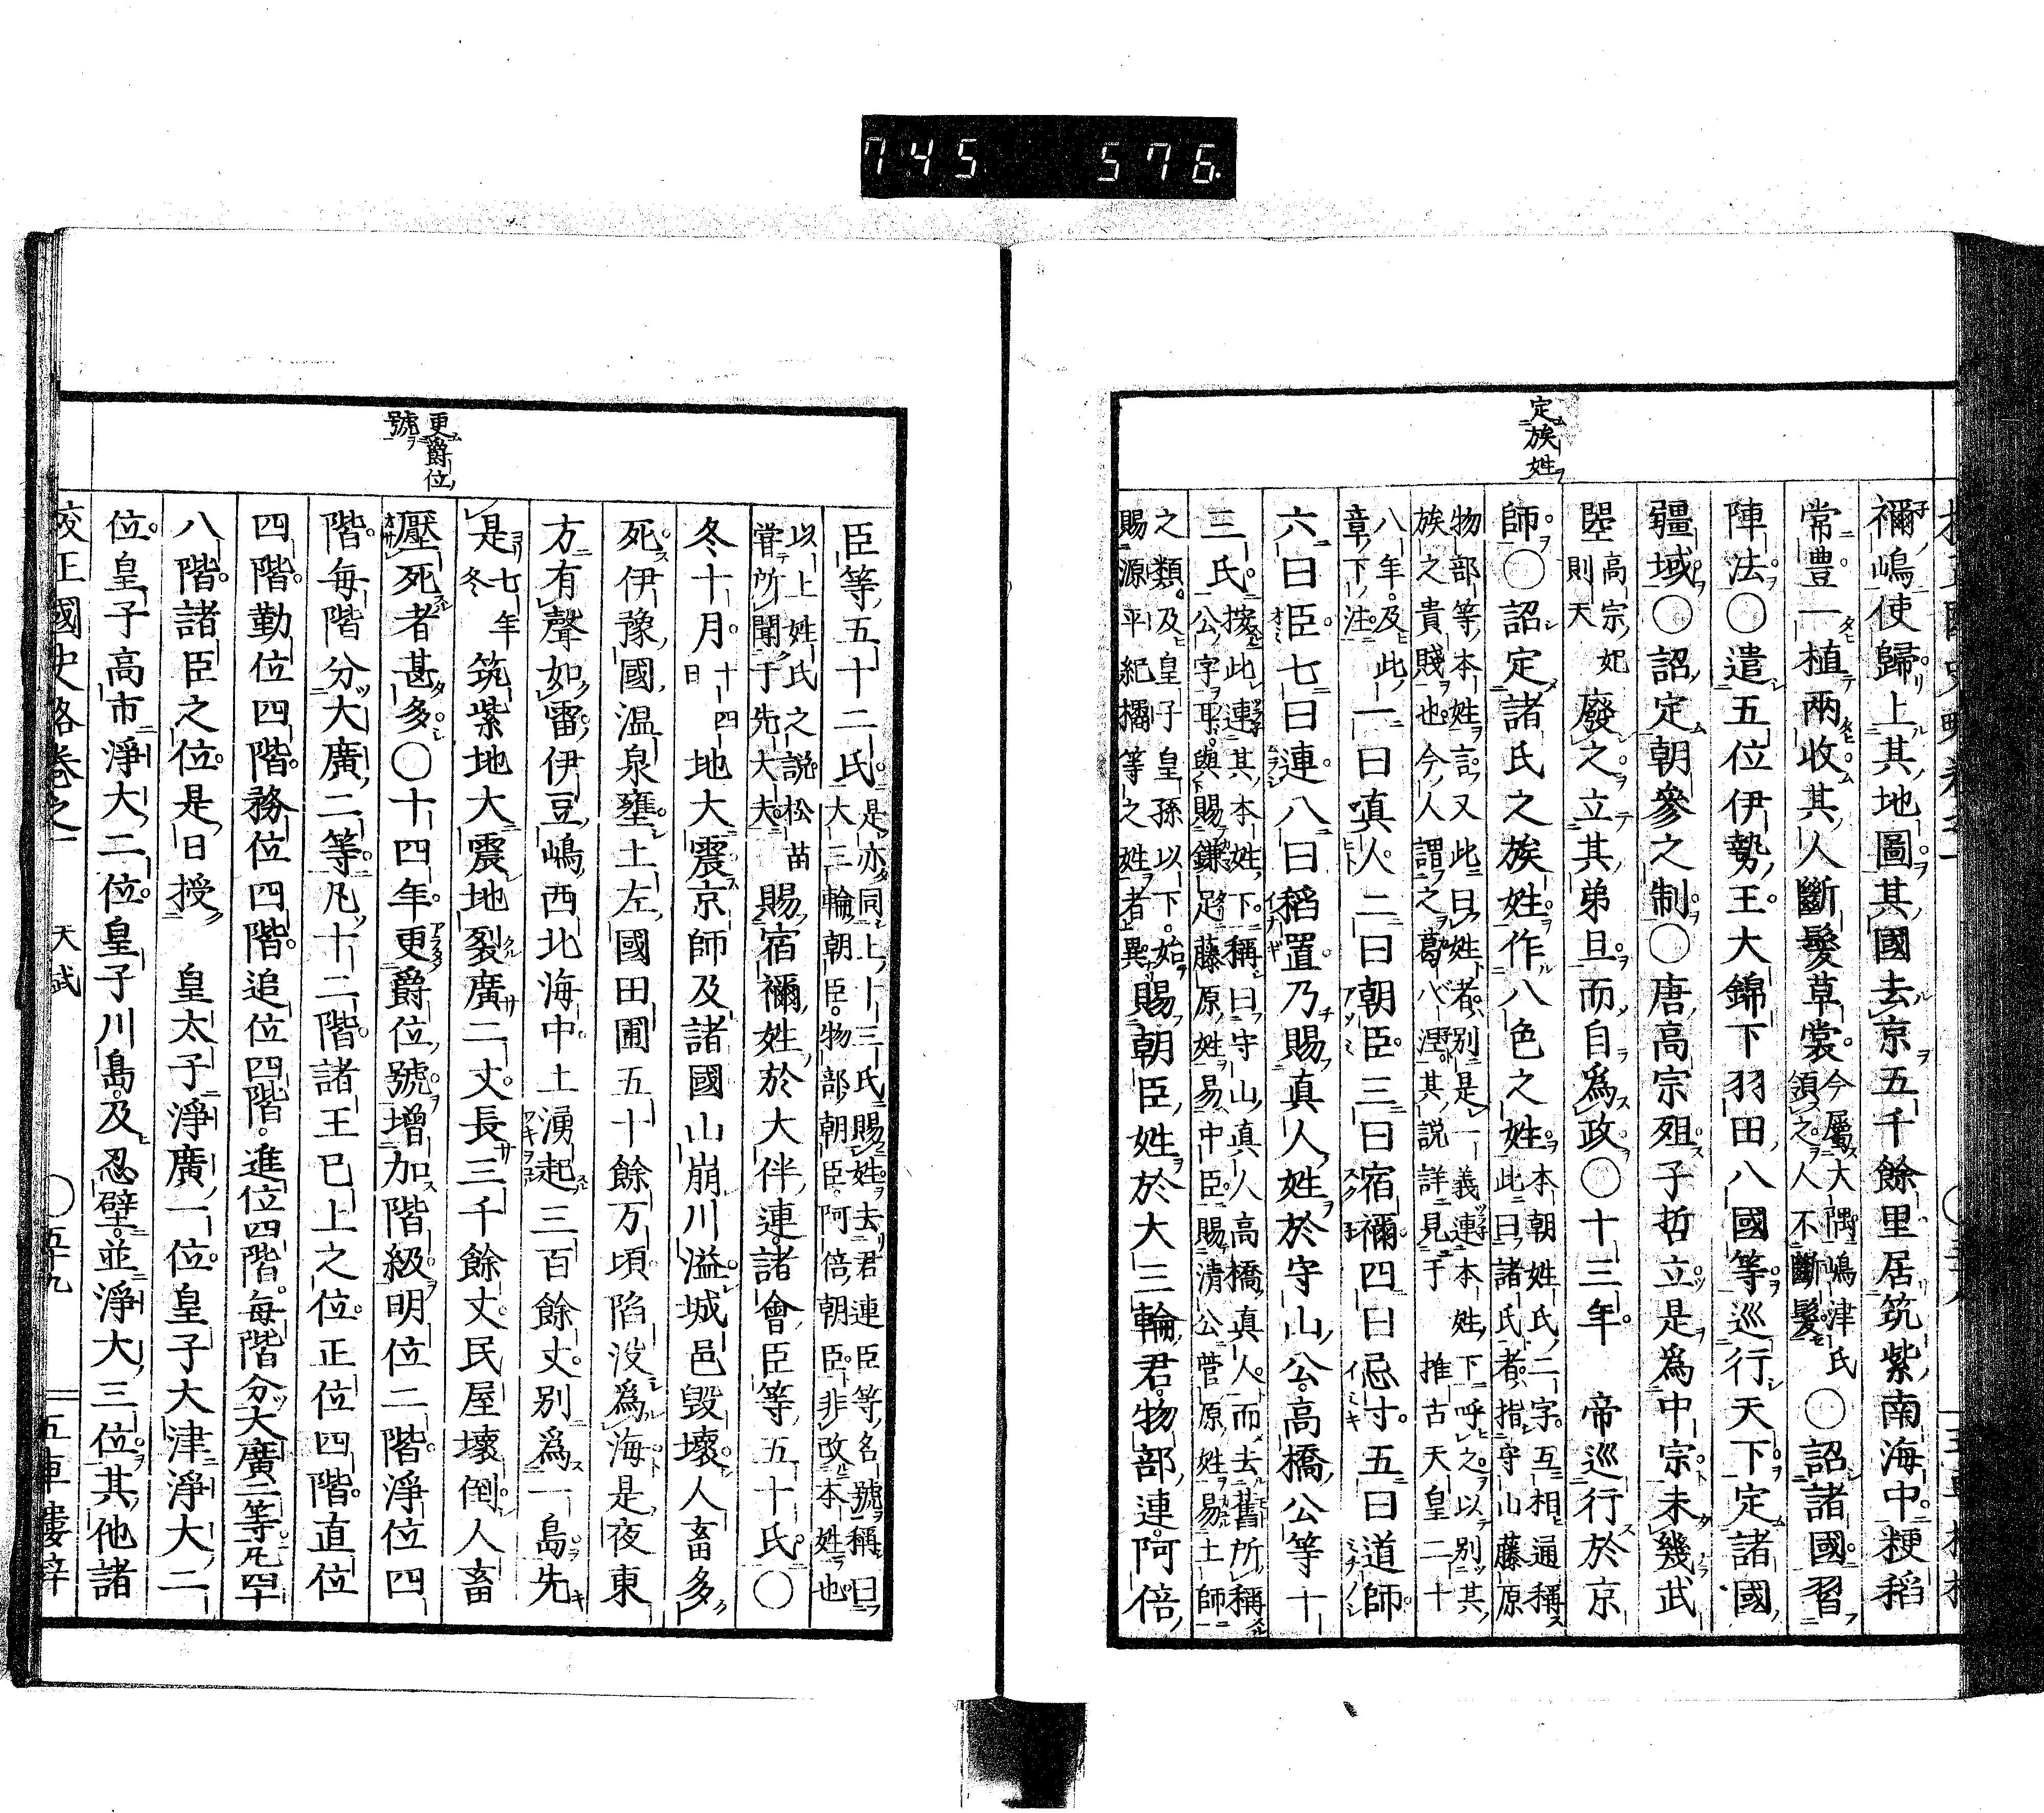 745 576
定族姓
禰嶋使歸上其地圖其國去京五千餘里居筑紫南海中粳稻
常豊一植兩收其人斷髮草裳今屬大隅嶋津氏領之人不斷髮〇詔諸國習
陣法〇遣五位伊勢王大錦下羽田八國等巡行天下定諸國
疆域〇詔定朝參之制〇唐高宗殂子哲立是爲中宗未幾武
曌高宗妃則天廢之立其弟旦而自爲政〇十三年 帝巡行於京
師〇詔定諸氏之族姓作八色之姓本朝姓氏二字互相通稱此曰諸氏者指守山藤原
物部等本姓言又此曰姓者別是一義連本姓下呼之以別其族之貴賤也今人謂之葛八湼其説詳見于推古天皇二十
八年及此章下注一曰眞人二曰朝臣三曰宿禰四曰忌寸五曰道師
六曰臣七曰連八曰稻置乃賜真人姓於守山公高橋公等十
三氏按此連其本姓下稱曰守山真人高橋真人而去舊所稱公字耳與賜鎌足藤原姓易中臣賜清公菅原姓易土師
之類及皇子皇孫以下始賜源平紀橘等之姓者異賜朝臣姓於大三輪君物部連阿倍
更爵位號
臣等五十二氏是亦同上十三氏賜姓去君連臣等名號稱曰大三輪朝臣物部朝臣阿倍朝臣非改本姓也
以上姓氏之説松苗嘗所聞于先大夫賜宿禰姓於大伴連諸會臣等五十氏〇
冬十月十四日地大震京師及諸國山崩川溢城邑毀壞人畜多
死伊豫國温泉壅土左國田圃五十餘万頃陷没爲海是夜東
方有聲如雷伊豆嶋西北海中土湧起三百餘丈別爲一島先
是七年冬筑紫地大震地裂廣二丈長三千餘丈民屋壞倒人畜
壓死者甚多〇十四年更爵位號增加階級明位二階淨位四
階每階分大廣二等凡十二階諸王已上之位正位四階直位
四階勤位四階務位四階追位四階進位四階每階分大廣二等凡四十
八階諸臣之位是日授 皇太子淨廣一位皇子大津淨大二
位皇子高市淨大二位皇子川島及忍壁並淨大三位其他諸
校正國史略卷之一 天武 〇五十九 五車樓梓